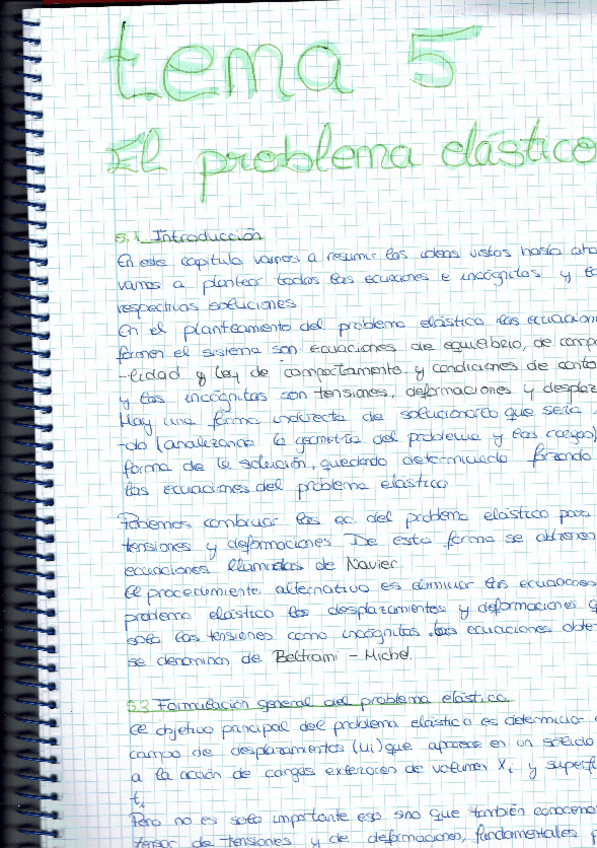 tema 5
El problema elástico
5.1 Introducción
En este capitulo vamos a resumir las ideas vistas hasta aho
vamos a plantear todas las ecuaciones e incógnitas y
respectivas soluciones
En el planteamiento del problema elástico las ecuacion
forman el sistema son ecuaciones de equilibrio, de comp
-lidad y ley de comportamiento y condiciones de conto
y las incógnitas son tensiones, deformaciones y desplaz
Hay una forma indirecta de solucionarlo que sería
-do (analizando la geometría del problema y las cargas)
forma de la solución, quedando determinado forzando
las ecuaciones del problema elástico
Podemos combinar las ec. del problema elástico para
tensiones y deformaciones De esta forma se obtienen
ecuaciones llamadas de Navier
El procedimiento alternativo es eliminar las ecuaciones
problema elástico los desplazamientos y deformaciones q
solo las tensiones como incógnitas. las ecuaciones obte
se denominan de Beltrami - Michel.
5.3 Formulación general del problema elástico
El objetivo principal del problema elástico es determinar
campo de desplazamientos (ui) que aparece en un sólido
a la acción de cargas exteriores de volumen Xi y superf
ti
Pero no es solo importante eso sino que también conocemos
tensor de tensiones y de deformaciones, fundamentales p